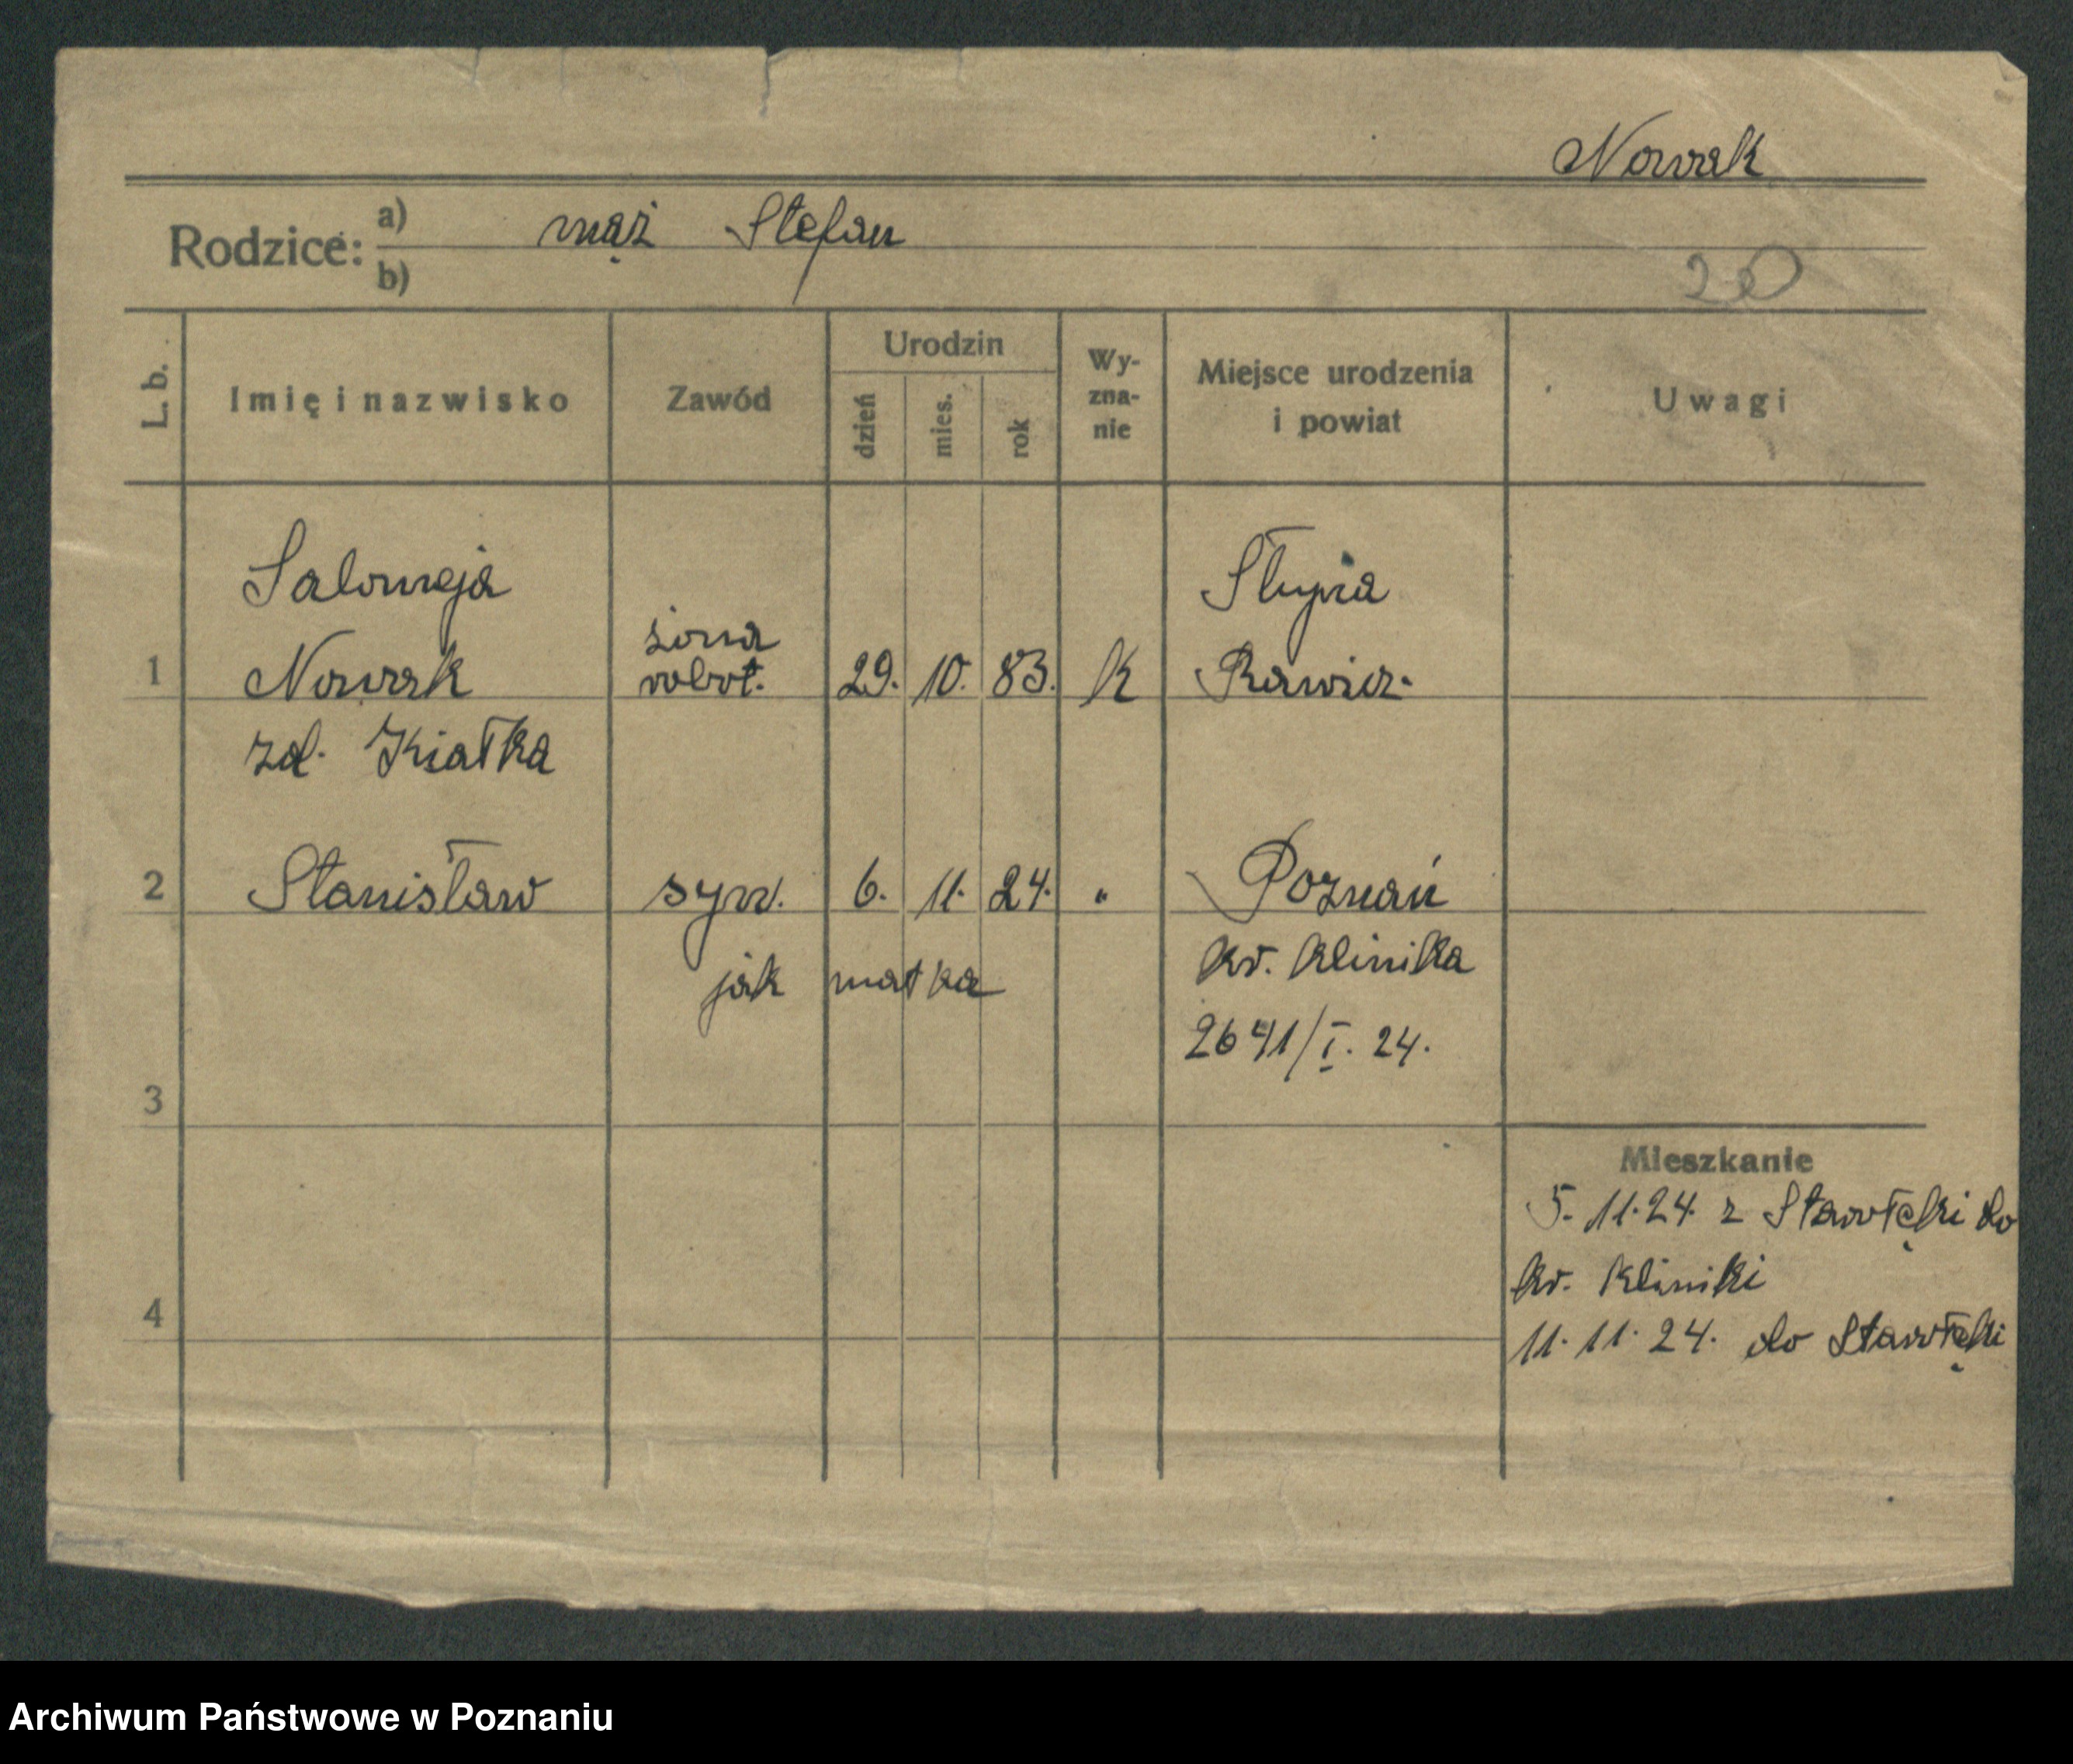 Nowak
Rodzice: a) mąż Stefan
b)
20
L. b.
Imię i nazwisko
Zawód
Urodzin
dzień
mies.
rok
Wy-
zna-
nie
Miejsce urodzenia
i powiat
Uwagi
Salomeja
Nowak
zd. Kiałka
1
żona
robot.
29. 10. 83.
K
Słupia
Rawicz.
2
Stanisław
syn.
6. 11. 24.
"
Poznań
jak matka
kr. klinika
2641/I. 24.
3
4
Mieszkanie
5. 11. 24. z Stawłęki do
kr. Kliniki
11. 11. 24. do Stawłęki
Archiwum Państwowe w Poznaniu